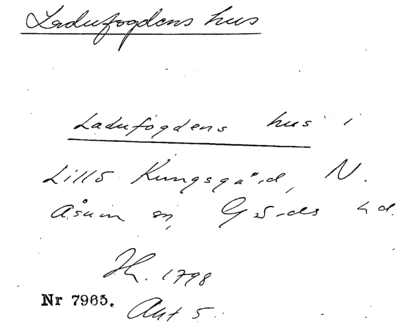 Ladufogdens hus
Ladufogdens hus i
Lillö Kungsgård, N.
Åsum sn, Gärds hd.
Hl. 1798
Nr 7965.
Akt 5.